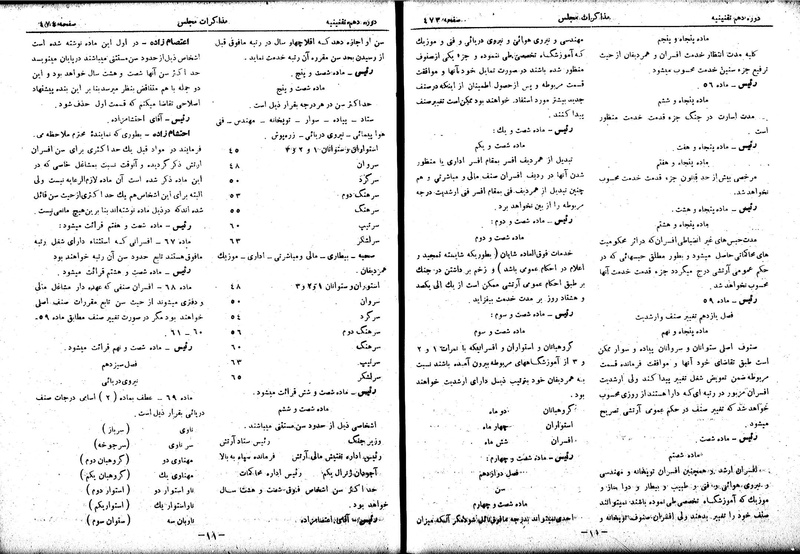 دوره دهم تقنینیه
مذاکرات مجلس
صفحه ۴۷۳
ماده پنجاه و پنجم
کلیه مدت انتظار خدمت افسران و همردیفان از حیث
ترفیع جزء سنین خدمت محسوب میشود.
رئیس ـ ماده ۵۶ـ
ماده پنجاه و ششم
مدت اسارت در جنگ جزء قدمت خدمت منظور
است
رئیس ـ ماده پنجاه و هفت.
ماده پنجاه و هفتم
مرخصی بیش از حد قانون جزء قدمت خدمت محسوب
نخواهد شد.
رئیس ـ ماده پنجاه و هشت.
ماده پنجاه و هشتم
مدت حبس‌های غیر انضباطی افسران که در اثر محکومیت
های محاکماتی حاصل میشود و بطور مطلق حبسهائی که در
حکم عمومی ارتشی درج میگردد جزء قدمت خدمت آنها
محسوب نخواهد شد.
رئیس ـ ماده ۵۹
فصل یازدهم تغییر صنف و ارشدیت
ماده پنجاه و نهم
صنوف اصلی ستوانان و سروانان پیاده و سوار ممکن
است طبق تقاضای خود آنها و موافقت فرمانده قسمت
مربوطه ضمن تعویض شغل تغییر پیدا کند ولی ارشدیت
افسران مزبور در رتبه‌ای که دارا هستند از روزی محسوب
خواهد شد که تغییر صنف در حکم عمومی ارتشی تصریح
میشود.
رئیس ـ ماده شصت.
ماده شصتم
افسران ارشد و همچنین افسران توپخانه و مهندسی
و نیروی هوائی و فنی و طبیب و بیطار و دوا ساز و
موزیک که آموزشگاه تخصصی طی نموده باشند نمیتوانند
صنف خود را تغییر بدهند ولی افسران صنوف توپخانه و
مهندسی و نیروی هوائی و نیروی دریائی و فنی و موزیک
که آموزشگاه تخصصی طی ننموده و جزء یکی از صنوف
منظور شده باشند در صورت تمایل خود آنها و موافقت
قسمت مربوطه و پس از حصول اطمینان از اینکه در صنف
جدید بیشتر مورد استفاده خواهند بود ممکن است تغییر صنف
پیدا کنند.
رئیس ـ ماده شصت و یك:
ماده شصت و یکم
تبدیل از همردیف افسر بمقام افسر اداری یا منظور
شدن آنها در ردیف افسران صنف مالی و مباشرتی و هم
چنین تبدیل از همردیف فنی بمقام افسر فنی ارشدیت درجه
مربوطه را از بین نخواهد برد.
رئیس ـ ماده شصت و دوم:
ماده شصت و دوم
خدمات فوق‌العاده شایان (بطوریکه شایسته تمجید و
اعلام در احکام عمومی باشد) و زخم بر داشتن در جنگ
بر طبق احکام عمومی ارتشی ممکن است از یك الی یکصد
و هشتاد روز بر مدت خدمت بیفزاید.
رئیس ـ ماده شصت و سوم:
ماده شصت و سوم
گروهبانان و استواران و افسرانیکه با نمرات ۱ و ۲
و ۳ از آموزشگاههای مربوطه بیرون آمده باشند نسبت
به همردیفان خود بترتیب ذیل دارای ارشدیت خواهند
بود.
گروهبانان دو ماه
استواران چهار ماه
افسران شش ماه
رئیس ـ ماده شصت و چهارم:
فصل دوازدهم
سن
ماده شصت و چهارم
احدی نمیتواند بدرجه مافوق نائل شود مگر آنکه میزان
ـ ۱۰ ـ
دوره دهم تقنینیه
مذاکرات مجلس
سن او اجازه دهد که اقلا چهار سال در رتبه مافوق قبل
از رسیدن بحد سن مقرره آن رتبه خدمت نماید.
رئیس ـ ماده شصت و پنج.
ماده شصت و پنج
حداکثر سن در هر درجه بقرار ذیل است.
ستاد ـ پیاده ـ سوار ـ توپخانه ـ مهندس ـ فنی
هوا پیمائی ـ نیروی دریائی ـ زره‌پوش.
استواران و ستوانان ۱ و ۲ و ۳ ۴۵
سروان ۴۸
سرگرد ۵۰
سرهنگ دوم ۵۳
سرهنگ ۵۵
سرتیپ ۶۰
سرلشگر ۶۳
صحیه ـ بیطاری ـ مالی و مباشرتی ـ اداری ـ موزیك
همردیفان.
استواران و ستوانان ۱ و ۲ و ۳ ۴۸
سروان ۵۰
سرگرد ۵۴
سرهنگ دوم ۵۶
سرهنگ ۶۰
سرتیپ ۶۳
سرلشگر ۶۵
رئیس ـ ماده شصت و شش قرائت میشود.
ماده شصت و ششم
اشخاص ذیل از حدود سن مستثنی میباشند.
وزیر جنگ رئیس ستاد ارتش
رئیس اداره تفتیش مالی ارتش فرمانده سپاه به بالا
آجودان ژنرال یکم رئیس اداره محاکمات
حداکثر سن اشخاص فوق شصت و هشت سال
خواهد بود.
رئیس ـ آقای اعتصام‌زاده
اعتصام زاده ـ در اول این ماده نوشته شده است
اشخاص ذیل از حدود سن مستثنی میباشند در پایان مینویسد
حداکثر سن آنها شصت و هشت سال خواهد بود و این
دو جمله با هم متناقض بنظر میرسد بنا بر این بنده پیشنهاد
اصلاحی تقاضا میکنم که قسمت اول حذف شود.
رئیس ـ آقای احتشام‌زاده.
احتشام زاده ـ بطوری که نماینده محترم ملاحظه می
فرمایند در مواد قبل یك حداکثری برای سن افسران
ارتش ذکر گردیده و آنوقت نسبت بمشاغل خاصی که در
این ماده ذکر شده است آن ماده لازم‌الرعایه نیست ولی
البته برای این اشخاص هم یك حداکثری از حیث سن قائل
شده‌اند که در ذیل ماده نوشته‌اند بنابر این هیچ مانعی نیست.
رئیس ـ ماده شصت و هفتم قرائت میشود:
ماده ۶۷ ـ افسرانی که استثناء دارای شغل رتبه
مافوق هستند تابع حدود سن آن رتبه خواهند بود
رئیس ـ ماده شصت و هشتم قرائت میشود.
ماده ۶۸ ـ افسران صنفی که عهده دار مشاغل مالی
و دفتری میشوند از حیث سن تابع مقررات صنف اصلی
خواهند بود مگر در صورت تغییر صنف مطابق ماده ۵۹ـ
۶۰ ـ ۶۱.
رئیس ـ ماده شصت و نهم قرائت میشود.
فصل سیزدهم
نیروی دریائی
ماده ۶۹ ـ عطف بماده (۲) اسامی درجات صنف
دریائی بقرار ذیل است.
ناوی (سرباز)
سر ناوی (سرجوخه)
مهناوی دو (گروهبان دوم)
مهناوی یك (گروهبان یکم)
ناو استوار دو (استوار دوم)
ناو استوار یك (استوار یکم)
ناوبان سه (ستوان سوم)
ـ ۱۱ ـ